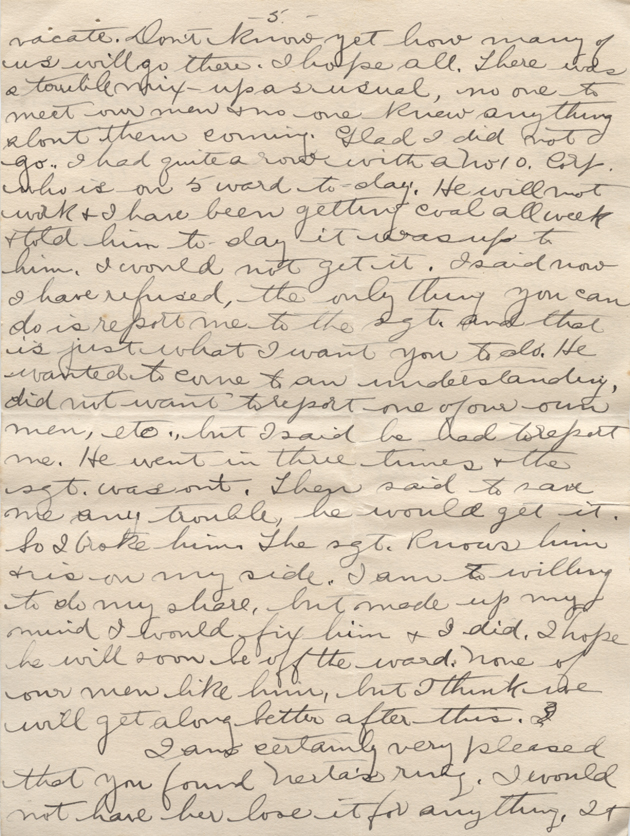 5
vacate. Don't know yet how many of
us will go there. I hope all. There was
a terrible mix-up as usual, no one to
meet our men & no one knew anything
about them coming. Glad I did not
go. I had quite a row with a No 10. Corp.
who is on 5 ward to-day. He will not
work & I have been getting coal all week
& told him to-day it was up to
him. I would not get it. I said now
I have refused, the only thing you can
do is report me to the sgt. and that
is just what I want you to do. He
wanted to come to an understanding,
did not want to report one of our own
men, etc., but I said he had to report
me. He went in three times & the
sgt. was out. Then said to save
me any trouble, he would get it.
So I broke him. The sgt. knows him
& is on my side. I am to willing
to do my share, but made up my
mind I would fix him & I did. I hope
he will soon be off the ward. None of
our men like him, but I think we
will get along better after this.
I am certainly very pleased
that you found Nerta's ring. I would
not have her lose it for anything. It